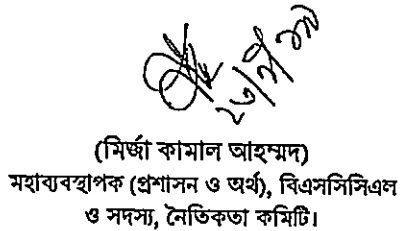 (মির্জা কামাল আহম্মদ)
মহাব্যবস্থাপক (প্রশাসন ও অর্থ), বিএসসিসিএল
ও সদস্য, নৈতিকতা কমিটি।